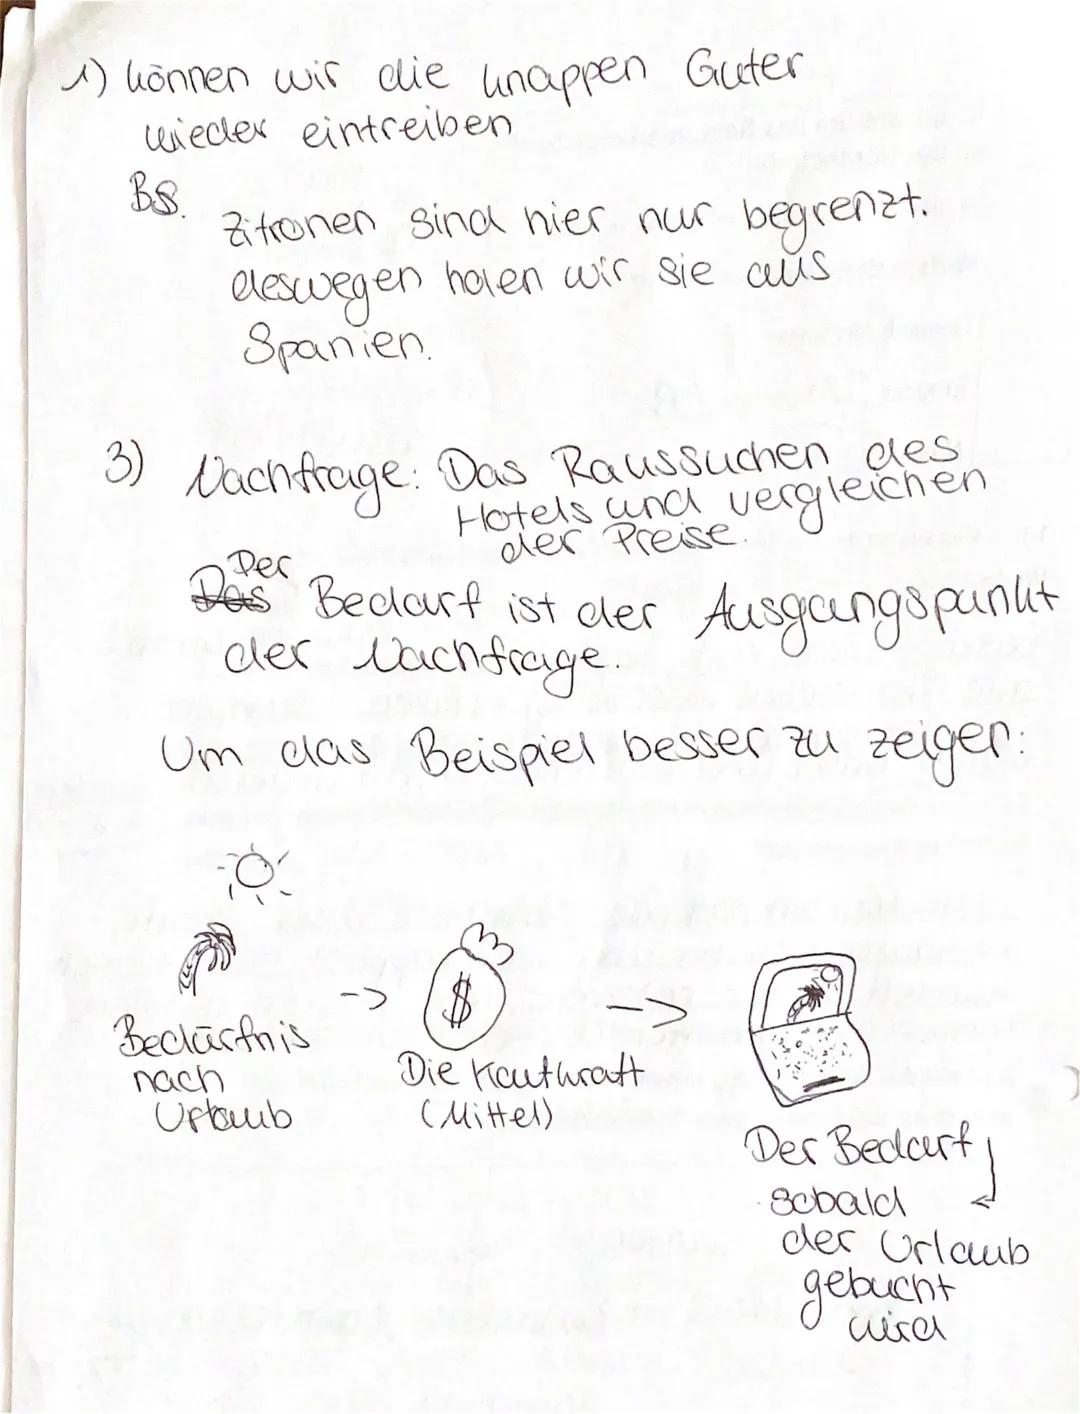 1) können wir die knappen Güter
wieder eintreiben
BS.
Zitronen sind hier nur begrenzt.
deswegen holen wir sie aus
Spanien.
3) Nachfrage: Das Raussuchen des
Hotels und vergleichen
der Preise.
Der
Das Bedarf ist der Ausgangspunkt
der Nachfrage.
Um das Beispiel besser zu zeigen:
-> $ ->
Bedürfnis
nach
Urlaub
Die Kaufkraft
(Mittel)
Der Bedarf
sobald
der Urlaub
gebucht
wird